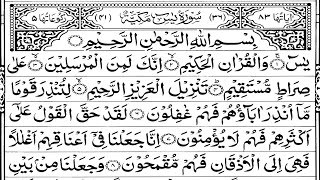 اٰيَاتُهَا ٨٣ (٣٦) سُوْرَةُ يٰسٓ مَكِّيَّةٌ (٤١) رُكُوْعَاتُهَا ٥
بِسْمِ اللّٰهِ الرَّحْمٰنِ الرَّحِيْمِ ○
يٰسٓ ۚ وَالْقُرْاٰنِ الْحَكِيْمِ ۙ اِنَّكَ لَمِنَ الْمُرْسَلِيْنَ ۙ عَلٰى
صِرَاطٍ مُّسْتَقِيْمٍ ؕ تَنْزِيْلَ الْعَزِيْزِ الرَّحِيْمِ ۙ لِتُنْذِرَ قَوْمًا
مَّاۤ اُنْذِرَ اٰبَآؤُهُمْ فَهُمْ غٰفِلُوْنَ ○ لَقَدْ حَقَّ الْقَوْلُ عَلٰۤى
اَكْثَرِهِمْ فَهُمْ لَا يُؤْمِنُوْنَ ○ اِنَّا جَعَلْنَا فِىْۤ اَعْنَاقِهِمْ اَغْلٰلًا
فَهِىَ اِلَى الْاَذْقَانِ فَهُمْ مُّقْمَحُوْنَ ○ وَجَعَلْنَا مِنْۢ بَيْنِ